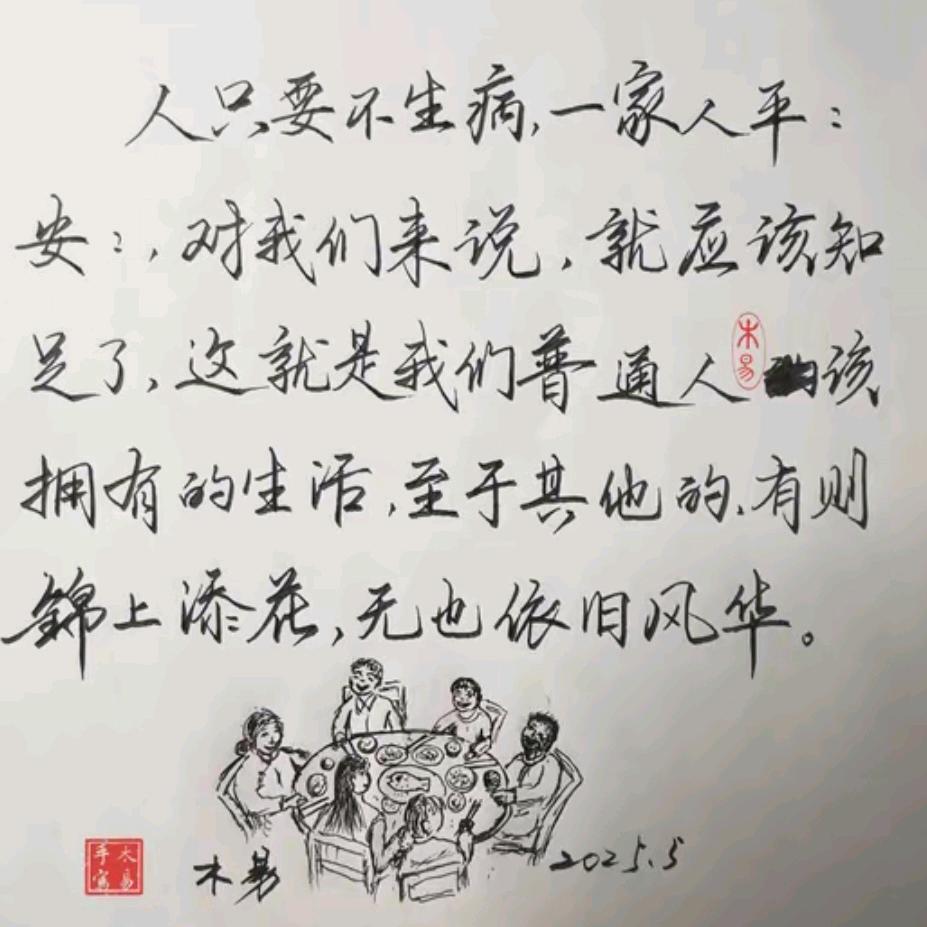 人只要不生病,一家人平:
安:,对我们来说,就应该知
足了,这就是我们普通人
木易
该
拥有的生活,至于其他的,有则
锦上添花,无也依旧风华。
木易
手写
木易
2025.5